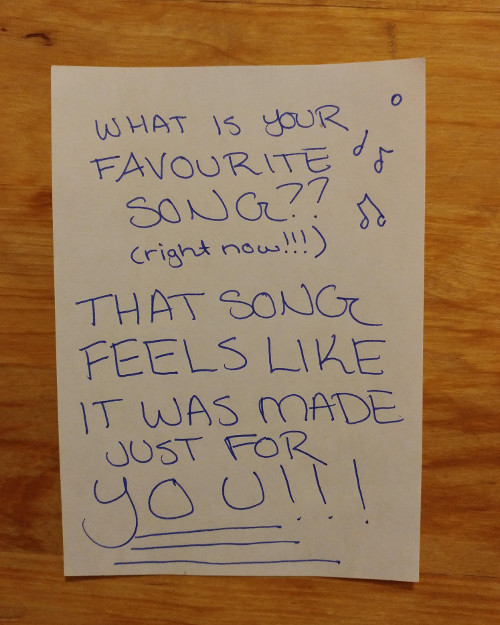 WHAT IS YOUR
FAVOURITE
SONG??
(right now!!!)
THAT SONG
FEELS LIKE
IT WAS MADE
JUST FOR
YOU!!!